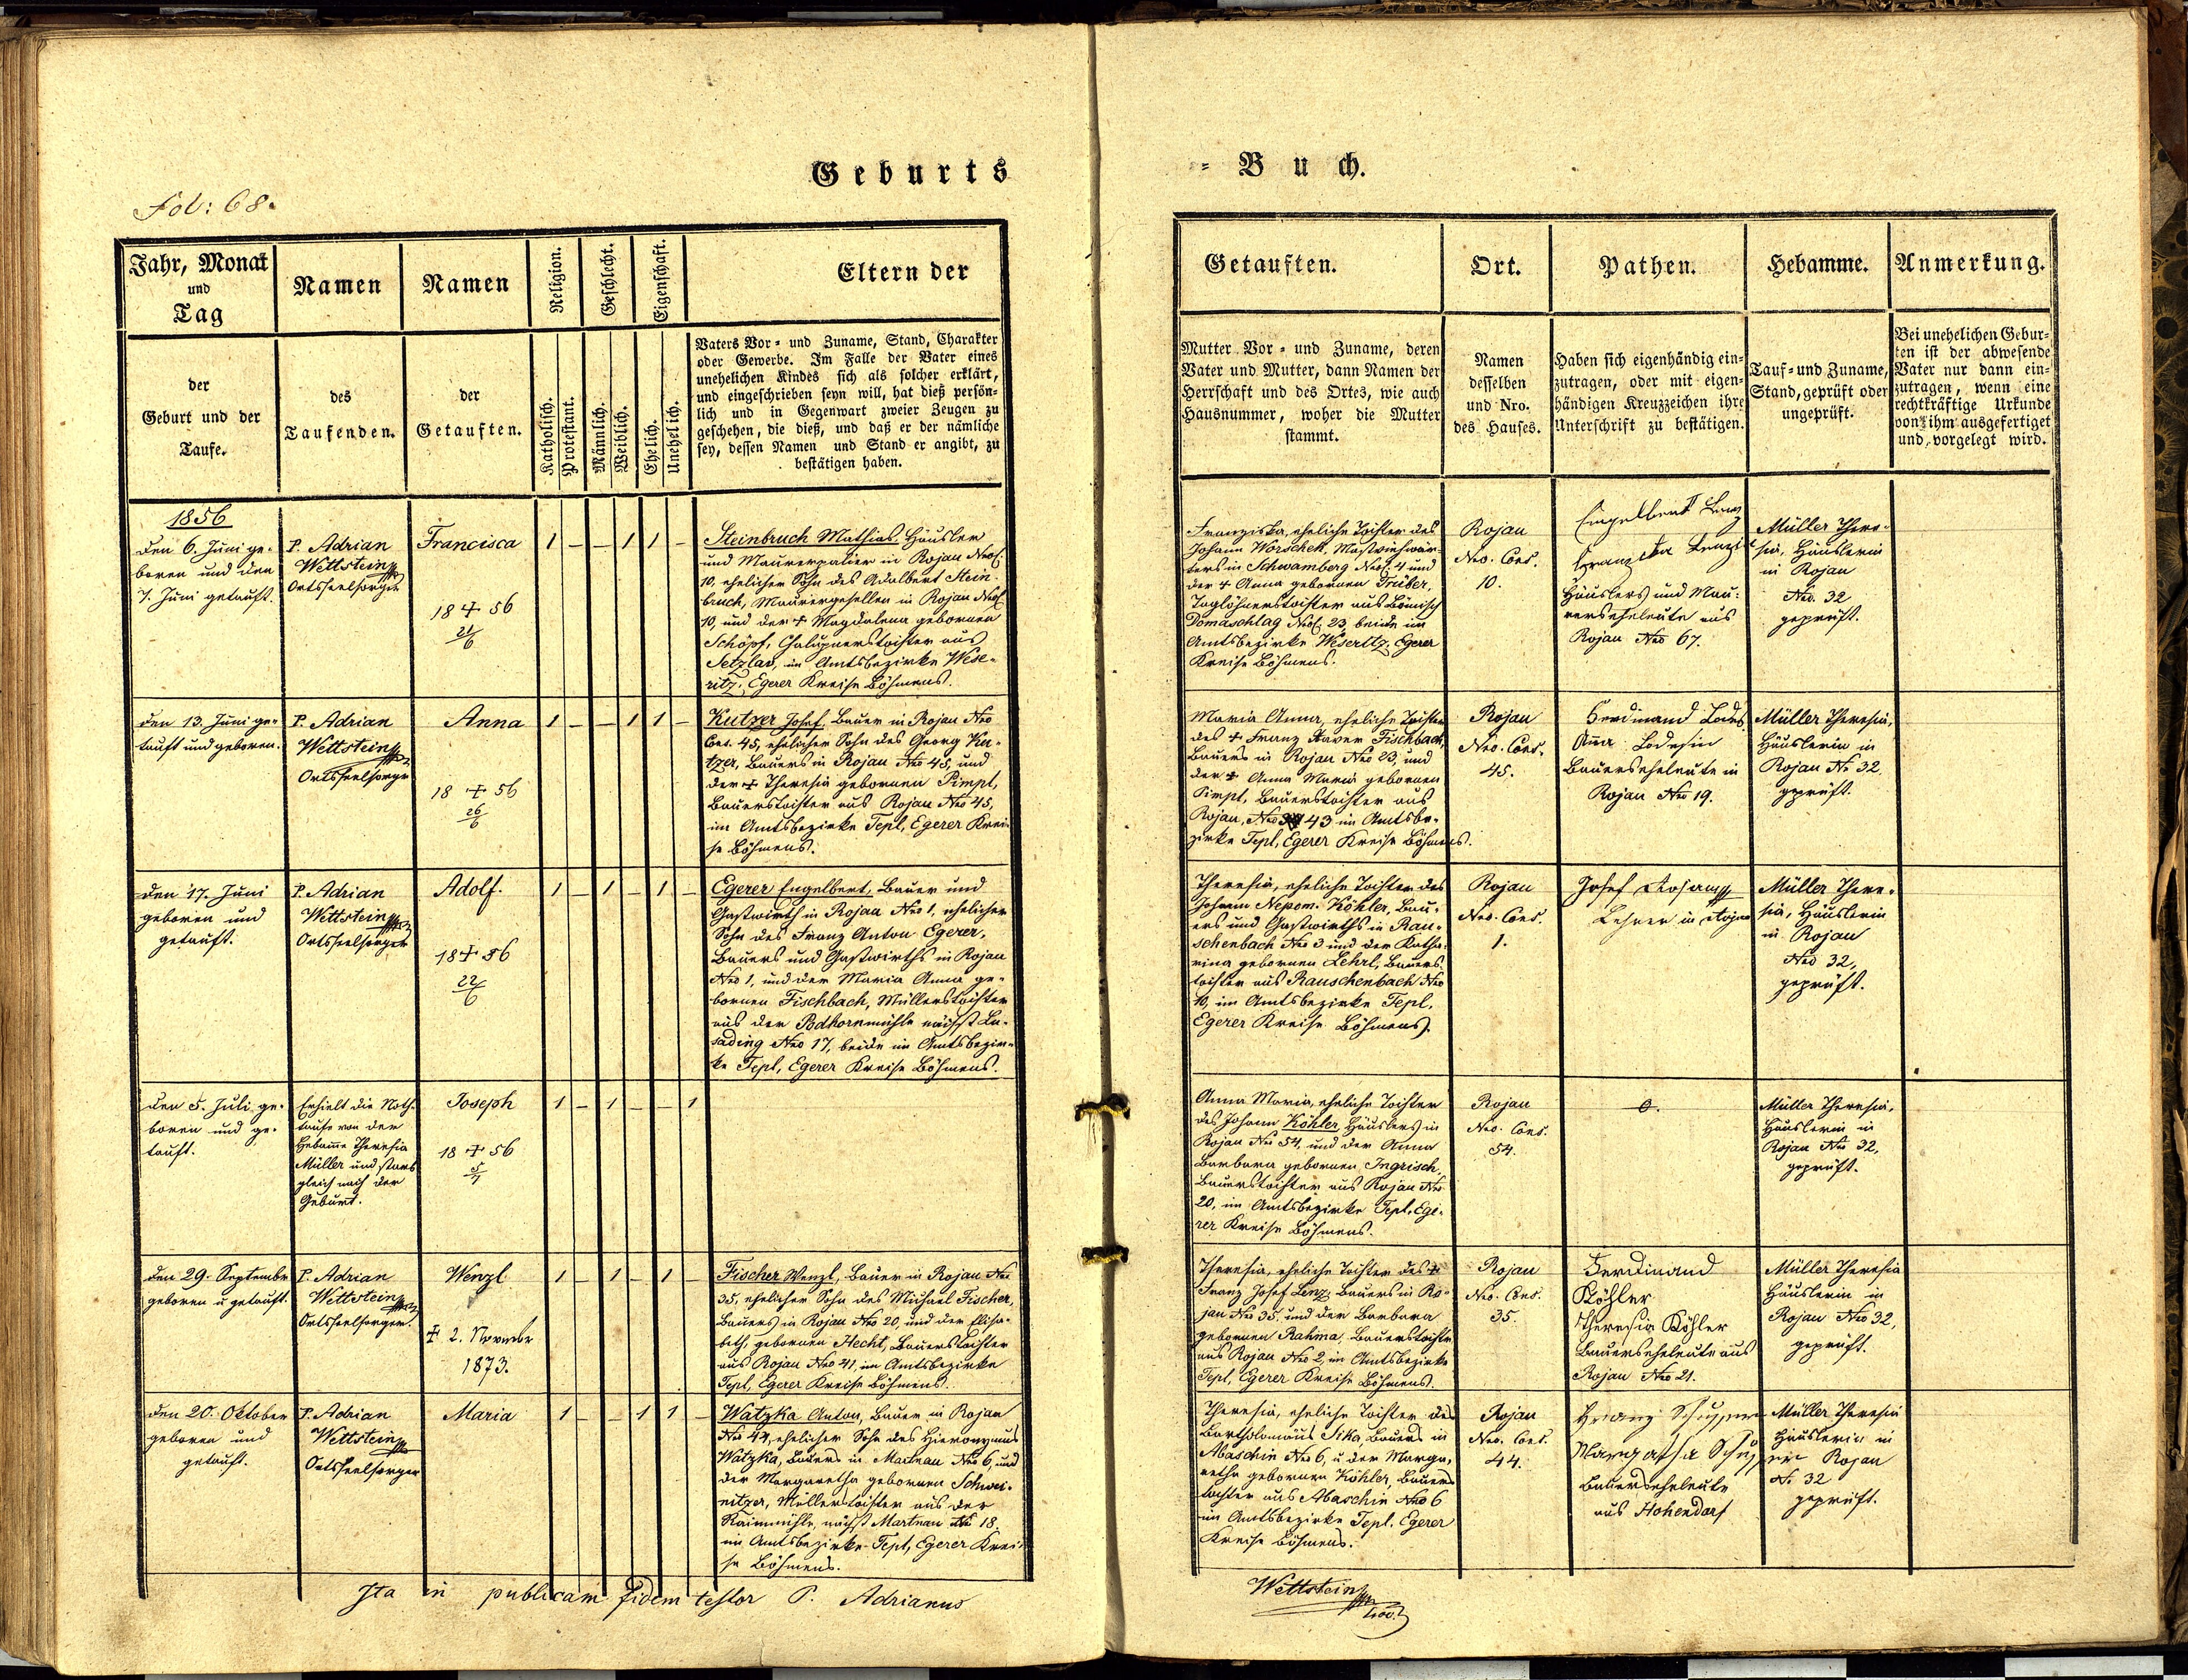 Geburts
= Buch.
Fol: 68.
Jahr, Monat
und
Tag
der
Geburt und der
Taufe.
Namen
des
Taufenden.
Namen
der
Getauften.
Religion.
Katholisch.
Protestant.
Geschlecht.
Männlich.
Weiblich.
Eigenschaft.
Ehelich.
Unehelich.
Eltern der
Vaters Vor= und Zuname, Stand, Charakter
oder Gewerbe. Im Falle der Vater eines
unehelichen Kindes sich als solcher erklärt,
und eingeschrieben seyn will, hat dieß persön=
lich und in Gegenwart zweier Zeugen zu
geschehen, die dieß, und daß er der nämliche
sey, dessen Namen und Stand er angibt, zu
bestätigen haben.
Getauften.
Mutter Vor= und Zuname, deren
Vater und Mutter, dann Namen der
Herrschaft und des Ortes, wie auch
Hausnummer, woher die Mutter
stammt.
Ort.
Namen
desselben
und Nro.
des Hauses.
Pathen.
Haben sich eigenhändig ein=
zutragen, oder mit eigen=
händigen Kreuzzeichen ihre
Unterschrift zu bestätigen.
Hebamme.
Tauf= und Zuname,
Stand, geprüft oder
ungeprüft.
Anmerkung.
Bei unehelichen Gebur=
ten ist der abwesende
Vater nur dann ein=
zutragen, wenn eine
rechtkräftige Urkunde
von ihm ausgefertiget
und vorgelegt wird.
1856
den 6. Juni ge-
boren und den
7. Juni getauft.
P. Adrian
Wettstein
Ortsseelsorger
Francisca
18 + 56
21/6
1 – – 1 1 –
Steinbruch Mathias Häusler
und Maurerpalier in Rojau Nro
10, ehelicher Sohn des Adalbert Stein-
bruch, Maurergesellen in Rojau Nro
10, und der + Magdalena gebornen
Schöpf, Chaluppnerstochter aus
Setzlav, im Amtsbezirke Wese-
ritz, Egerer Kreise Böhmens.
Franziska, eheliche Tochter des
Johann Worschek, Mastviehwär-
ters in Schwamberg Nro 4 und
der + Anna gebornen Trüber,
Taglöhnerstochter aus Böhmisch
Domaschlag Nro 23, beide im
Amtsbezirke Weseritz, Egerer
Kreise Böhmens.
Rojau
Nro. Cons.
10.
Engelbert Lenz
Franziska Lenzin
Häuslers und Mau-
rerseheleute aus
Rojau Nro 67.
Müller There-
sia, Häuslerin
in Rojau
Nro. 32
geprüft.
den 13. Juni ge-
tauft und geboren.
P. Adrian
Wettstein
Ortsseelsorger
Anna
18 + 56
26/6
1 – – 1 1 –
Kutzer Josef, Bauer in Rojau Nro
Cons. 45, ehelicher Sohn des Georg Ku-
tzer, Bauers in Rojau Nro 45, und
der + Theresia gebornen Pimpl,
Bauerstochter aus Rojau Nro 45,
im Amtsbezirke Tepl, Egerer Krei-
se Böhmens.
Maria Anna, eheliche Tochter
des + Franz Xaver Fischbach,
Bauers in Rojau Nro 23, und
der + Anna Maria gebornen
Pimpl, Bauerstochter aus
Rojau, Nro 43 im Amtsbe-
zirke Tepl, Egerer Kreise Böhmens.
Rojau
Nro. Cons.
45.
Ferdinand Lodes
Anna Lodesin
Bauerseheleute in
Rojau Nro 19.
Müller Theresia,
Häuslerin in
Rojau No 32,
geprüft.
den 17. Juni
geboren und
getauft.
P. Adrian
Wettstein
Ortsseelsorger
Adolf.
18 + 56
22/6
1 – 1 – 1 –
Egerer Engelbert, Bauer und
Gastwirth in Rojau Nro 1, ehelicher
Sohn des Franz Anton Egerer,
Bauers und Gastwirths in Rojau
Nro 1, und der Maria Anna ge-
bornen Fischbach, Müllerstochter
aus der Podhornmühle nächst Lu-
sading Nro 17, beide im Amtsbezir-
ke Tepl, Egerer Kreise Böhmens.
Theresia, eheliche Tochter des
Johann Nepom. Köhler, Bau-
ers und Gastwirths in Rau-
schenbach Nro 3 und der Katha-
rina gebornen Lehrl, Bauers-
tochter aus Rauschenbach Nro
10, im Amtsbezirke Tepl,
Egerer Kreise Böhmens.
Rojau
Nro. Cons.
1.
Josef
Lehrer in Rojau
Müller There-
sia, Häuslerin
in Rojau
Nro 32,
geprüft.
den 5. Juli ge-
boren und ge-
tauft.
Erhielt die Noth-
taufe von der
Hebamme Theresia
Müller und starb
gleich nach der
Geburt.
Joseph
18 + 56
5/7
1 – 1 – – 1
Anna Maria, eheliche Tochter
des Johann Köhler, Häuslers in
Rojau No 54, und der Anna
Barbara gebornen Ingrisch,
Bauerstochter aus Rojau Nro
20, im Amtsbezirke Tepl, Ege-
rer Kreise Böhmens.
Rojau
Nro. Cons.
54.
0.
Müller Theresia,
Häuslerin in
Rojau Nro 32,
geprüft.
den 29. September
geboren u getauft.
P. Adrian
Wettstein
Ortsseelsorger.
Wenzl
+ 2. November
1873.
1 – 1 – 1 –
Fischer Wenzl, Bauer in Rojau Nro
35, ehelicher Sohn des Michael Fischer,
Bauers in Rojau Nro 20, und der Elisa-
beth, gebornen Hecht, Bauerstochter
aus Rojau Nro 41, im Amtsbezirke
Tepl, Egerer Kreise Böhmens.
Theresia, eheliche Tochter des +
Franz Josef Lenz, Bauers in Ro-
jau Nro 35, und der Barbara
gebornen Rahma, Bauerstochter
aus Rojau Nro 2, im Amtsbezirke
Tepl, Egerer Kreise Böhmens.
Rojau
Nro. Cons.
35.
Ferdinand
Köhler
Theresia Köhler
Bauerseheleute aus
Rojau Nro 21.
Müller Theresia
Häuslerin in
Rojau Nro 32,
geprüft.
den 20. Oktober
geboren und
getauft.
P. Adrian
Wettstein
Ortsseelsorger
Maria
1 – – 1 1 –
Watzka Anton, Bauer in Rojau
Nro 44, ehelicher Sohn des Hieronymus
Watzka, Bauers in Martnau Nro 6, und
der Margaretha gebornen Schwei-
nitzer, Müllerstochter aus der
Raimmühle nächst Martnau No 18,
im Amtsbezirke Tepl, Egerer Krei-
se Böhmens.
Theresia, eheliche Tochter des
Bartholomäus Sika, Bauers in
Abaschin No 6, u der Marga-
retha gebornen Köhler, Bauers-
tochter aus Abaschin Nro 6
im Amtsbezirke Tepl, Egerer
Kreise Böhmens.
Rojau
Nro. Cons.
44.
Franz
Margaretha
Bauerseheleute
aus Hohendorf
Müller Theresia
Häuslerin in
Rojau
No 32
geprüft.
Ita in publicam fidem testor P. Adrianus
Wettstein